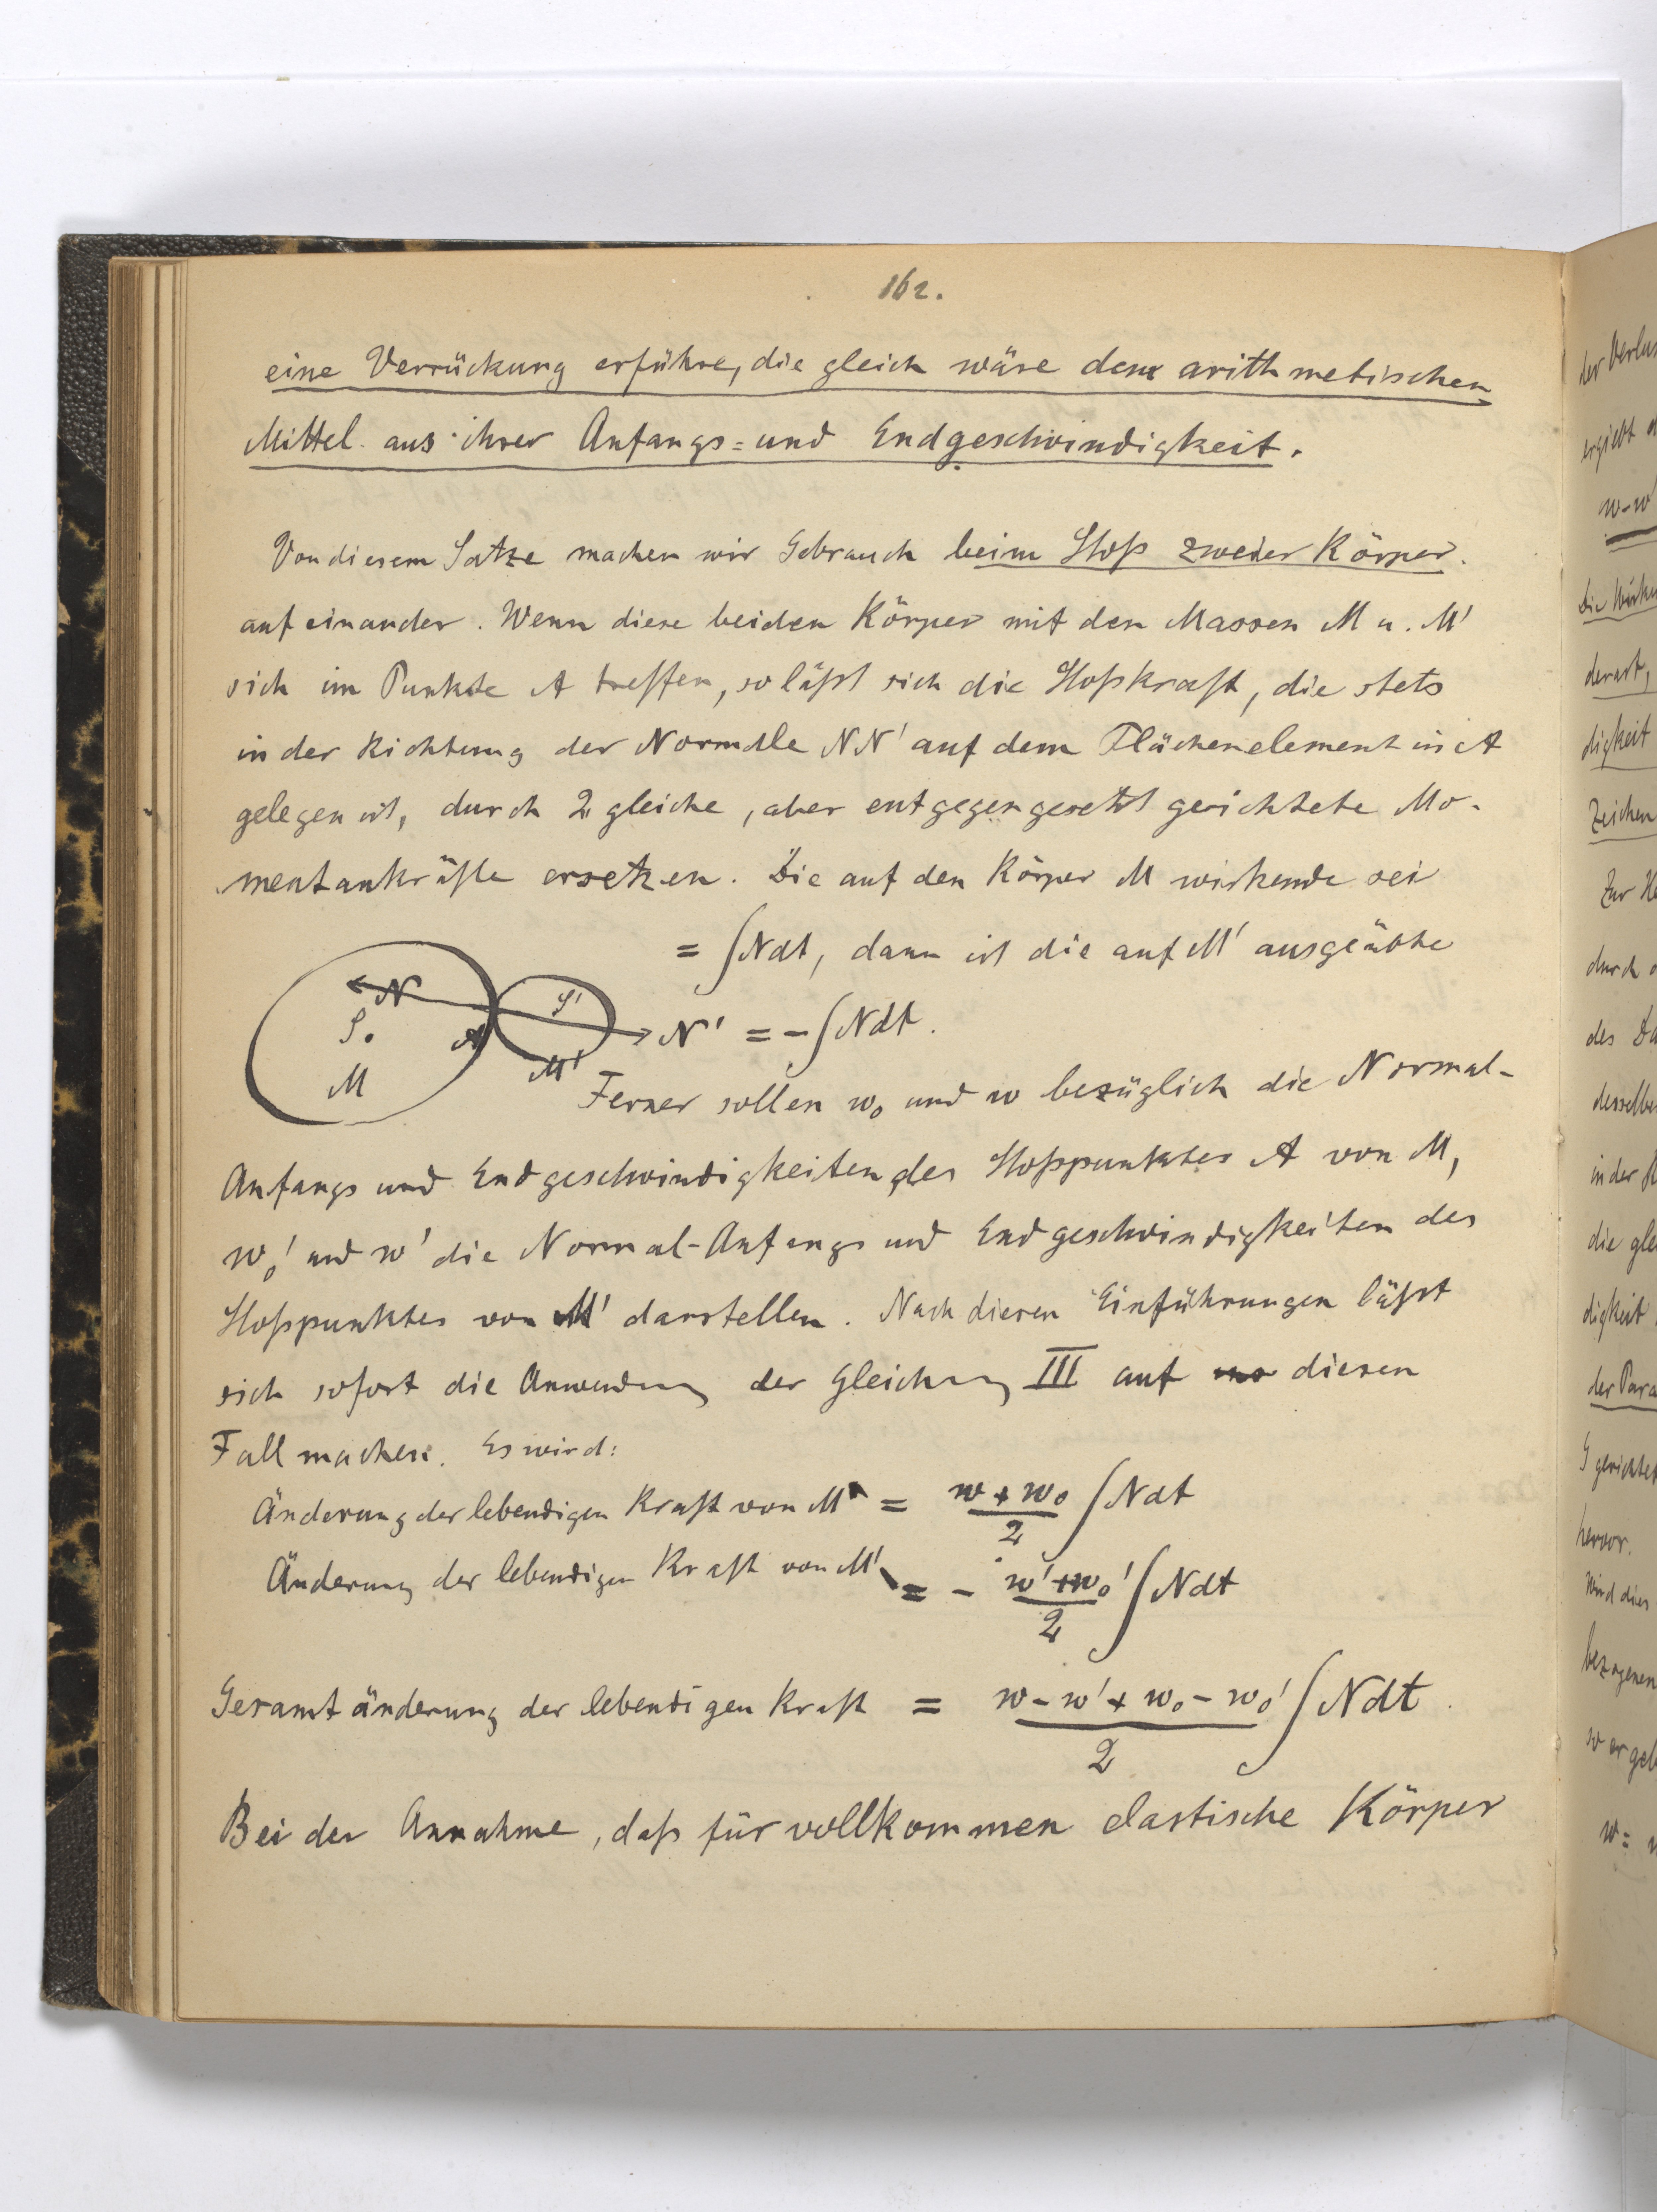 162.
eine Verrückung erführe, die gleich wäre dem arithmetischen
Mittel aus ihrer Anfangs= und Endgeschwindigkeit.
Von diesem Satze machen wir Gebrauch beim Stoß zweier Körper.
auf einander. Wenn diese beiden Körper mit den Massen M u. M'
sich im Punkte A treffen, so läßt sich die Stoßkraft, die stets
in der Richtung der Normale NN' auf dem Flächenelement in A
gelegen ist, durch 2 gleiche, aber entgegengesetzt gerichtete Mo-
mentankräfte ersetzen. Die auf den Körper M wirkende sei
= ∫Ndt, dann ist die auf M' ausgeübte
N S' S. A M M' N' = -∫Ndt.
Ferner sollen w₀ und w bezüglich die Normal-
Anfangs und Endgeschwindigkeiten des Stoßpunktes A von M,
w₀' und w' die Normal-Anfangs und Endgeschwindigkeiten des
Stoßpunktes von M' darstellen. Nach diesen Einführungen läßt
sich sofort die Anwendung der Gleichung III auf diesen
Fall machen. Es wird:
Änderung der lebendigen Kraft von M = (w + w₀)/2 ∫Ndt
Änderung der lebendigen Kraft von M' = - (w' + w₀')/2 ∫Ndt
Gesamtänderung der lebendigen Kraft = (w - w' + w₀ - w₀')/2 ∫Ndt.
Bei der Annahme, daß für vollkommen elastische Körper
der Verlus
ergiebt
w-w'
Die Wirku
derart,
digkeit
Zeichen
Zur
durch
des
desselbe
in der
die gle
digkeit
der Para
G gerichtet
hervor.
Wird dies
bezogenen
so ergeb
w =